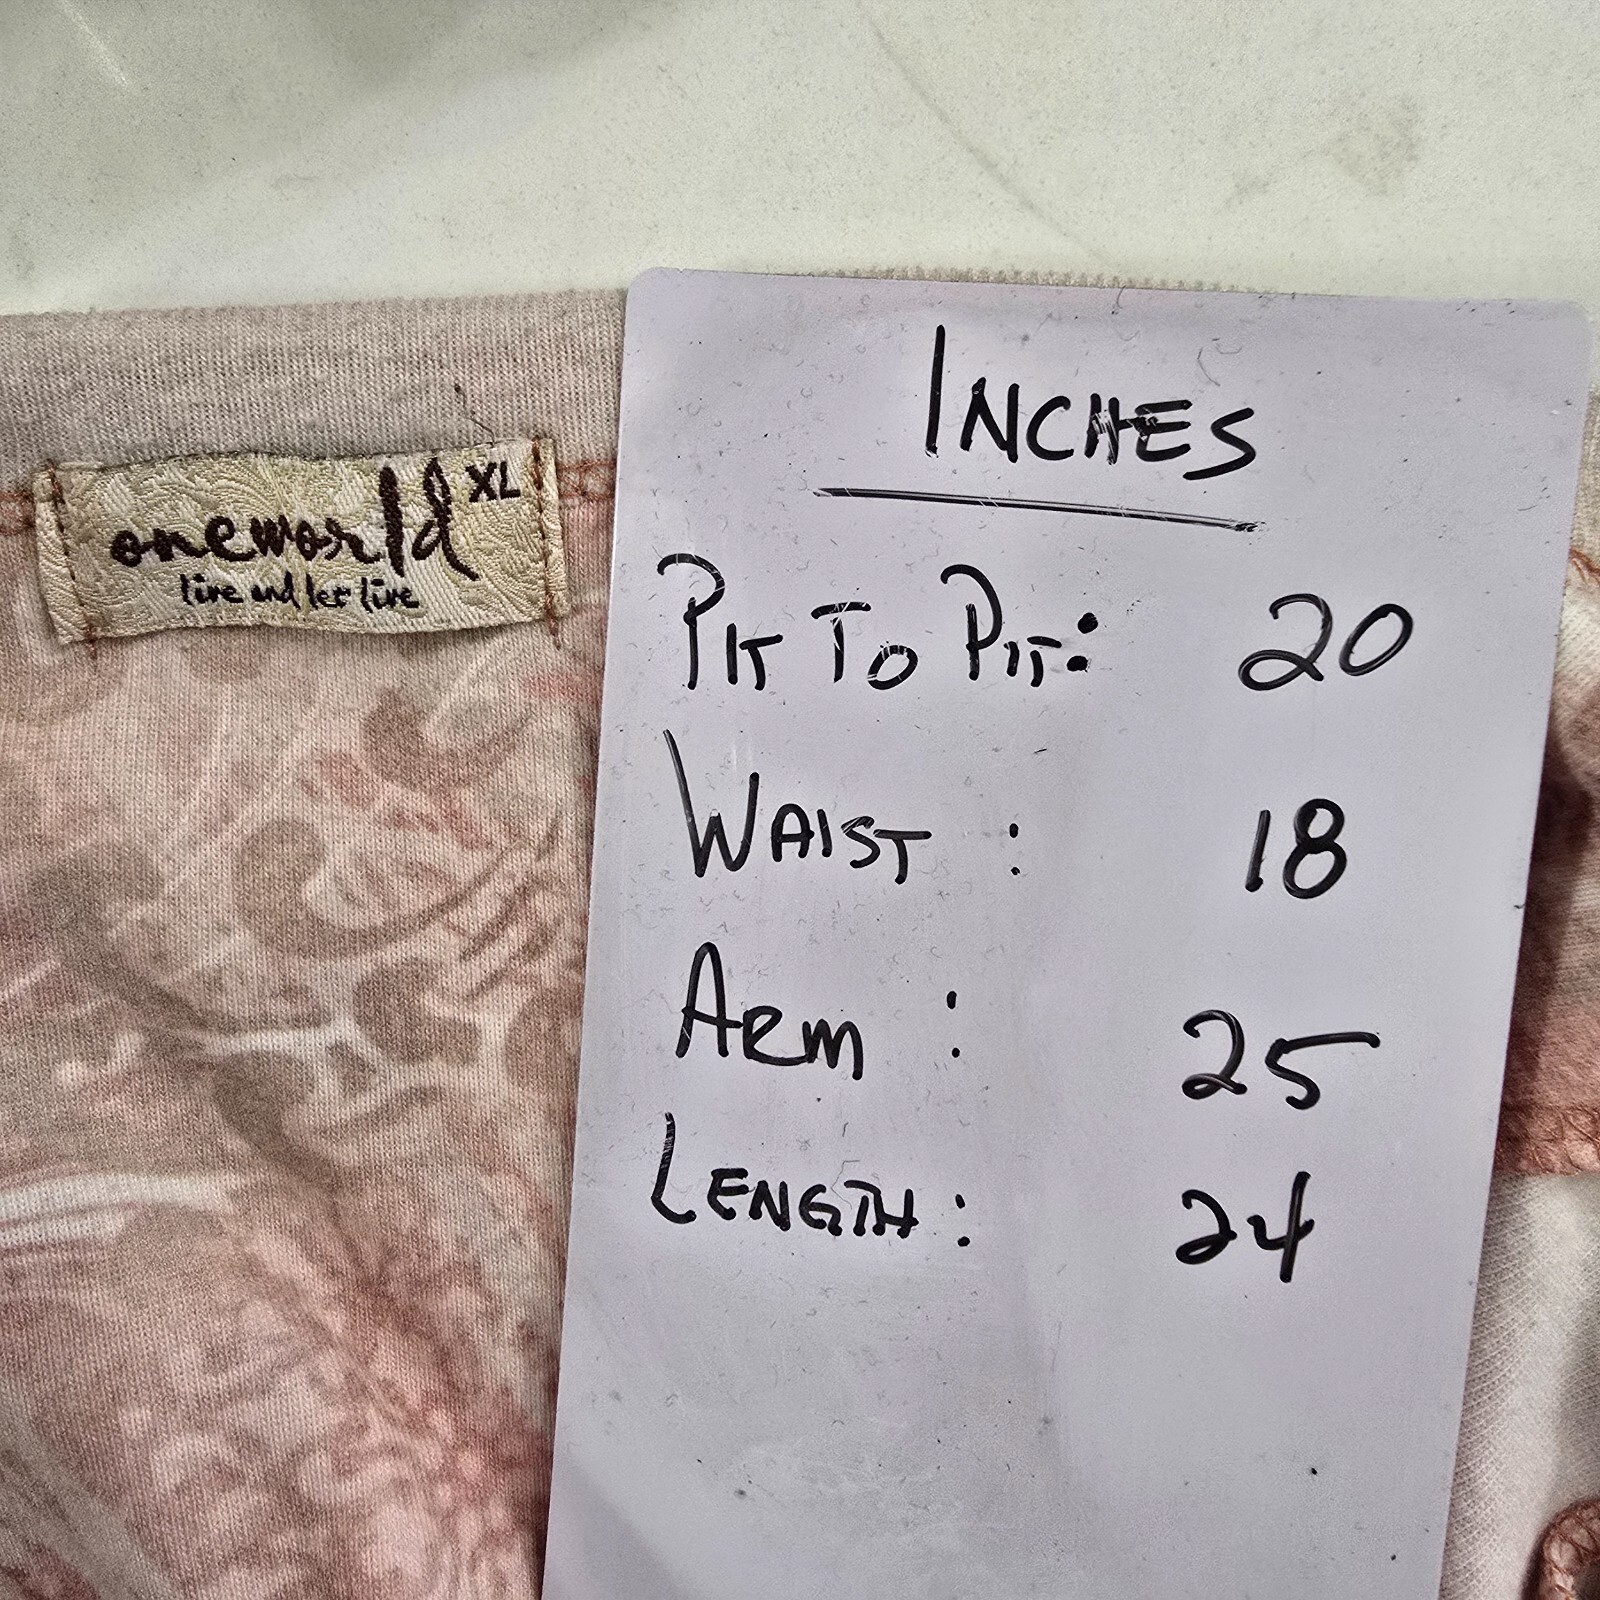 oneworld XL
live and let live
INCHES
PIT TO PIT: 20
WAIST : 18
ARM : 25
LENGTH: 24